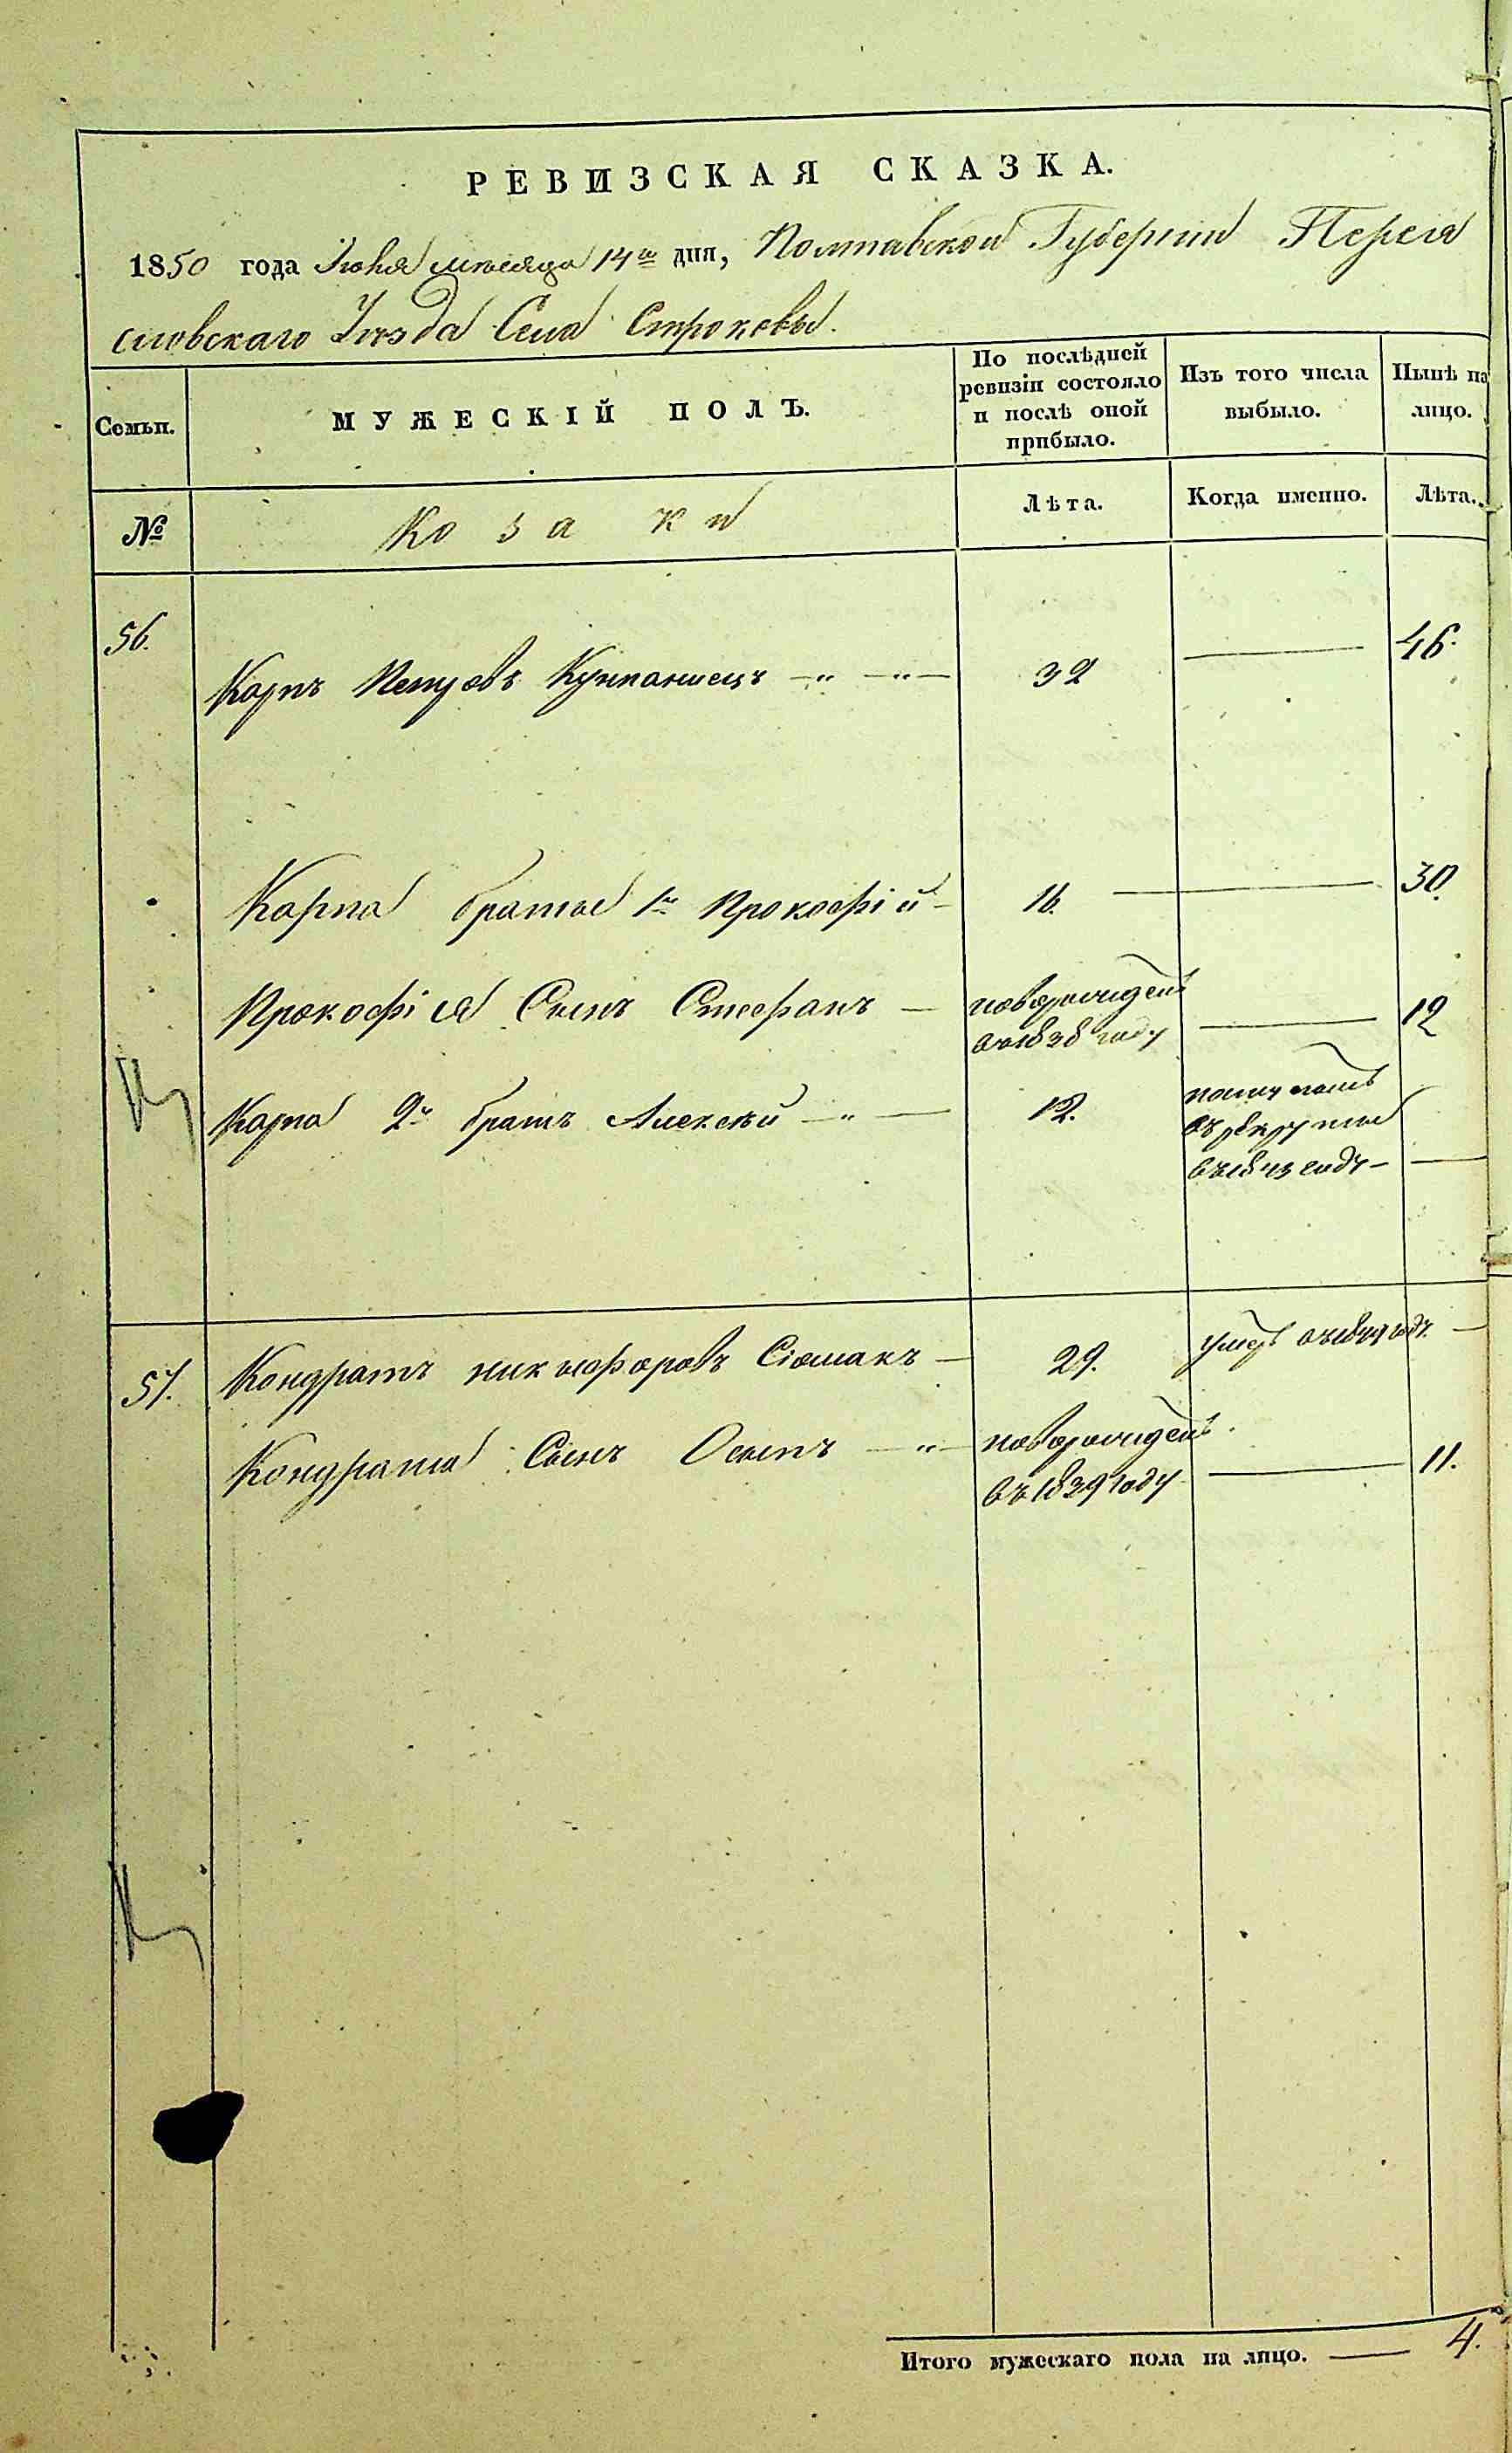 РЕВИЗСКАЯ СКАЗКА.
1850 года Іюня мѣсяца 14го дня, Полтавской Губерніи Перея
словскаго Уѣзда Села Строковы.
Семьи.
МУЖЕСКІЙ ПОЛЪ.
По послѣдней
ревизіи состояло
и послѣ оной
прибыло.
Изъ того числа
выбыло.
Нынѣ на
лицо.
№
Козаки
Лѣта.
Когда именно.
Лѣта.
56.
Карпъ Петровъ
32
46.
Карпа братья 1й Прокофій
16.
30.
Прокофія Сынъ Стефанъ
новорожденъ
12
въ 1838 году
Карпа 2й братъ Алексѣй
12.
въ рекруты
въ 1843 году
57.
Кондратъ Никифоровъ Сіомакъ
29.
умеръ въ 1844 году
Кондрата Сынъ Осипъ
новорожденъ
11.
въ 1839 году
Итого мужескаго пола на лицо.
4.